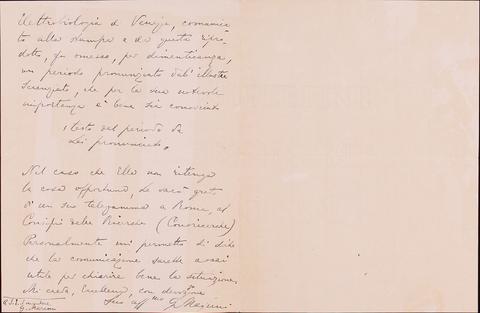 elettrobiologia di Venezia, comunica-
to alla stampa e da questa ripro-
dotto, fu omesso, per dimenticanza,
un periodo pronunziato dall'illustre
Scienziato, che per la sua notevole
importanza è bene sia conosciuto
(testo del periodo da
Lei pronunciato).
Nel caso che Ella non ritenga
la cosa opportuna, Le sarò grato
di un suo telegramma a Roma, al
Consiglio delle Ricerche (Conricerche)
Personalmente mi permetto di dire
che la comunicazione sarebbe assai
utile per chiarire bene la situazione.
Mi creda, Eccellenza, con devozione
Suo aff.mo G. Magrini
a S. E.
G. Marconi